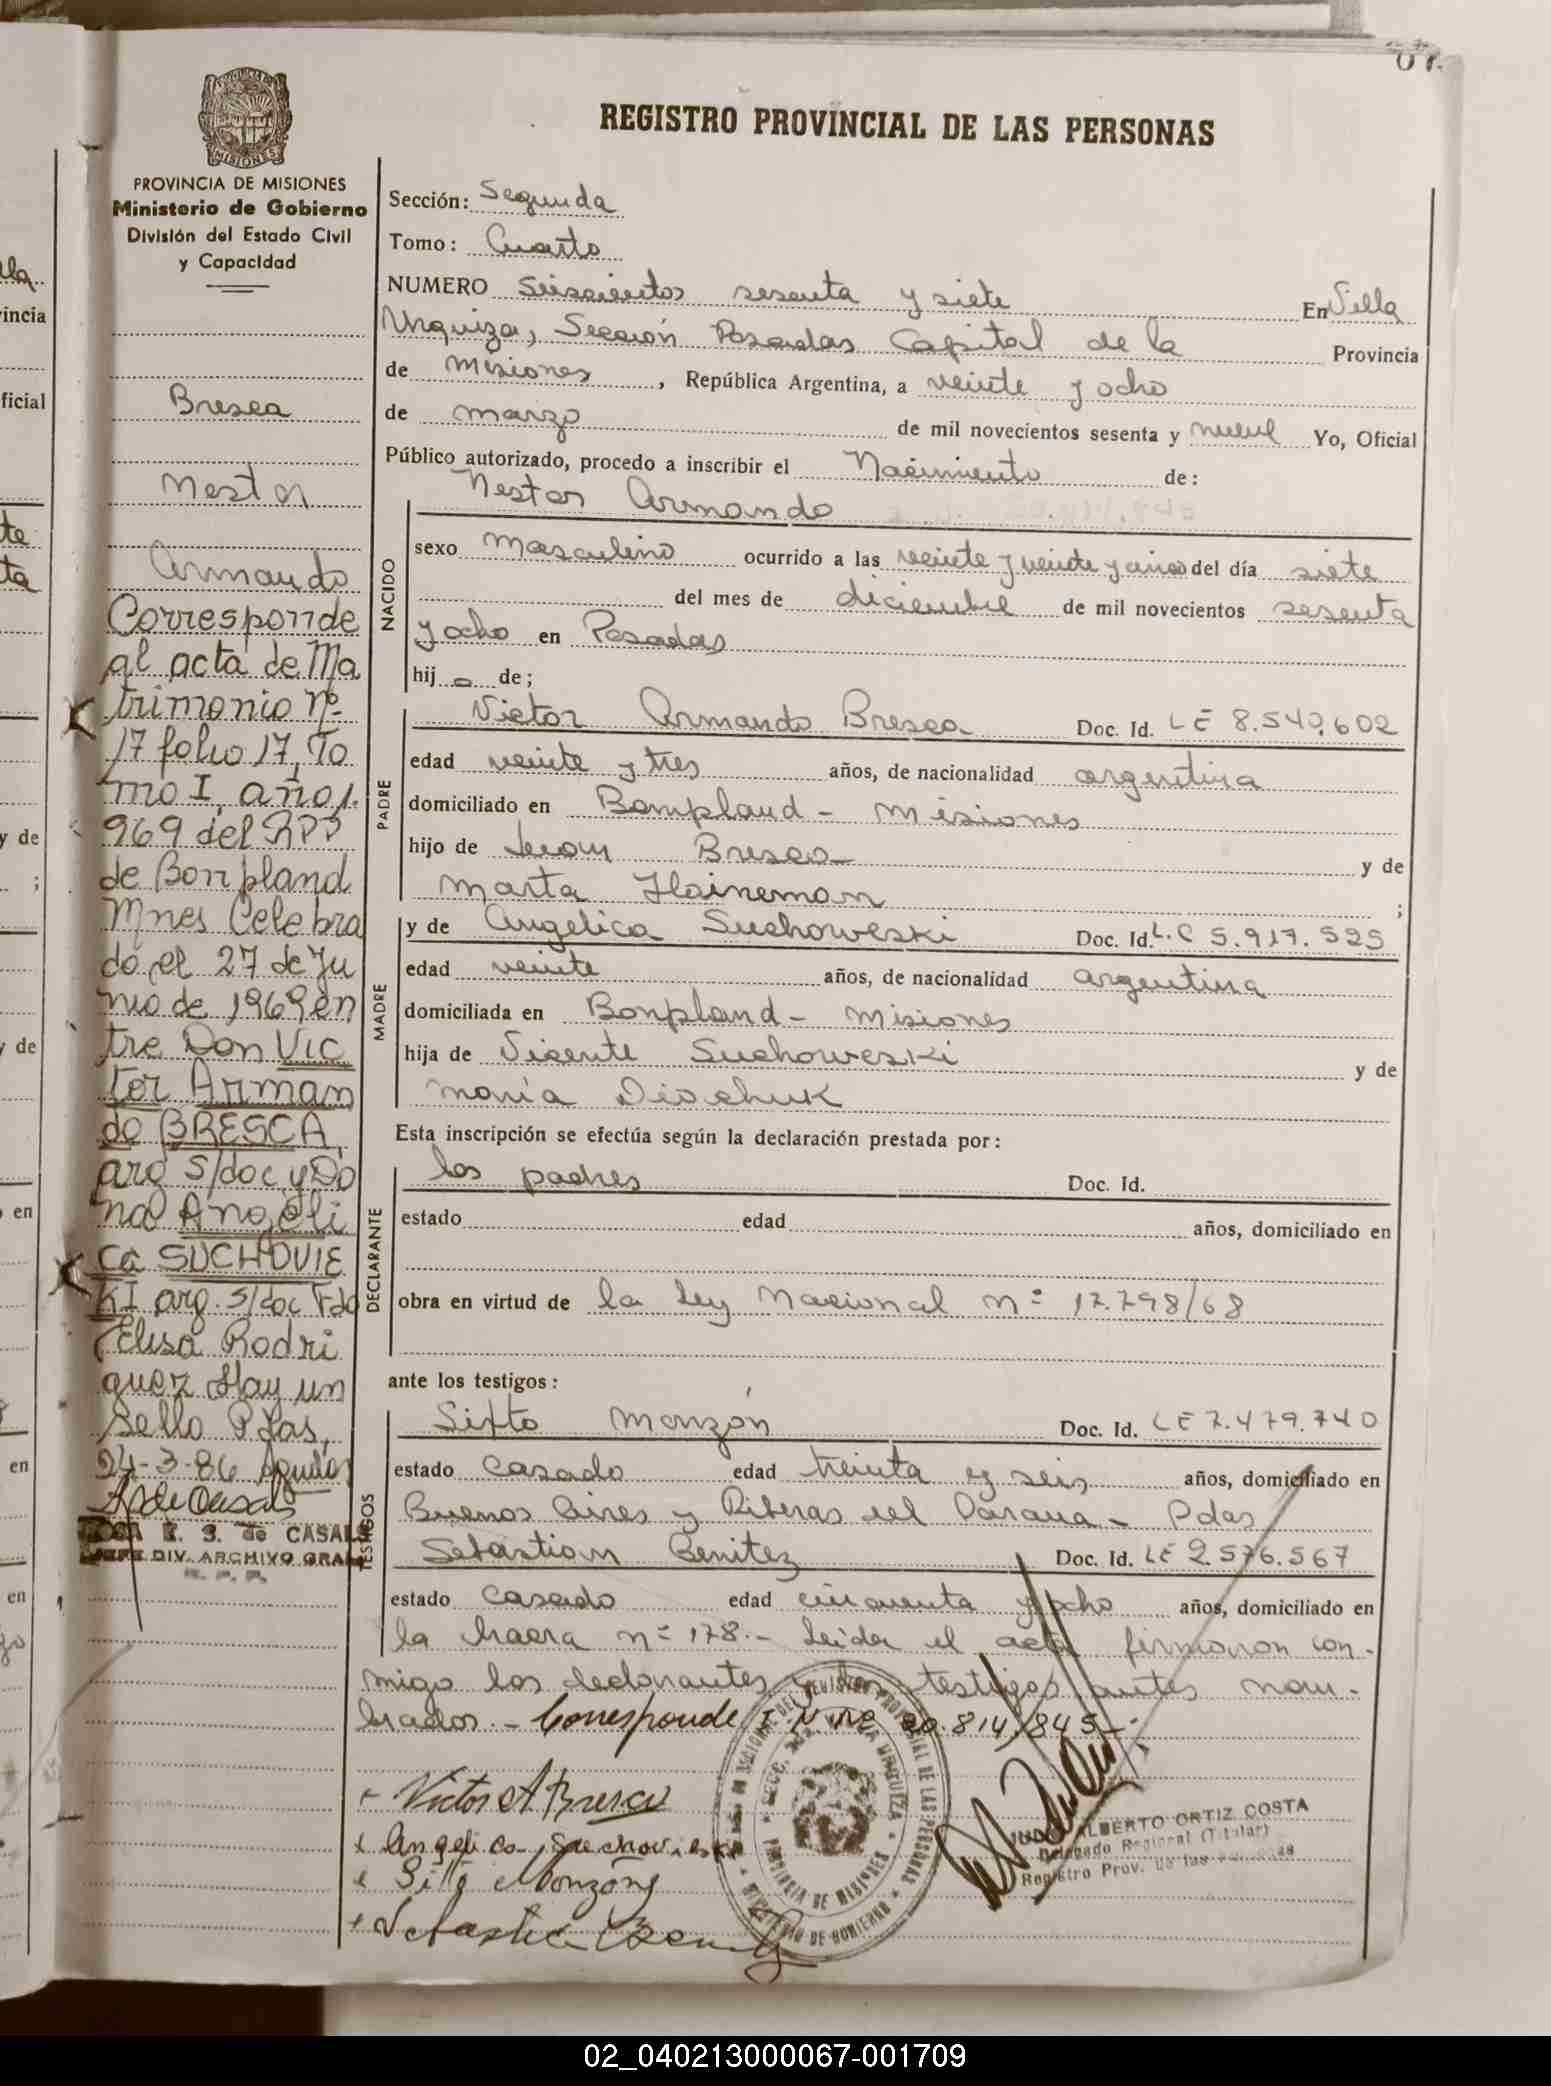 PROVINCIA DE MISIONES
Ministerio de Gobierno
División del Estado Civil
y Capacidad
Bresca
Nestor
Armando
Corresponde
al acta de Ma
trimonio Nº
17 folio 17, To
mo I, año 1.
969 del RPP
de Bonpland
Mnes Celebra
do el 27 de Ju
nio de 1969 en
tre Don VIC
tor Arman
do BRESCA,
arg s/doc y Do
ña Angéli
ca SUCHOVIE
KI arg. s/doc Fdo
Elisa Rodri
guez Hay un
sello Pdas,
24-3-86
E. S. de CASALS
JEFE DIV. ARCHIVO GRAL
R. P. P.
REGISTRO PROVINCIAL DE LAS PERSONAS
Sección: Segunda
Tomo: Cuarto
NUMERO Seiscientos sesenta y siete En Villa
Urquiza, Sección Posadas Capital de la Provincia
de Misiones, República Argentina, a veinte y ocho
de marzo de mil novecientos sesenta y nueve Yo, Oficial
Público autorizado, procedo a inscribir el Nacimiento de:
Nestor Armando
NACIDO
sexo Masculino ocurrido a las veinte y veinte y cinco del día siete
del mes de diciembre de mil novecientos sesenta
y ocho en Posadas
hij o de;
PADRE
Victor Armando Bresca Doc. Id. LE 8.540.602
edad veinte y tres años, de nacionalidad argentina
domiciliado en Bompland - Misiones
hijo de Bresca y de
Marta Haineman ;
MADRE
y de Angelica Suchoweski Doc. Id. L.C 5.917.525
edad veinte años, de nacionalidad argentina
domiciliada en Bonpland - Misiones
hija de Vicente Suchoweski y de
Maria Diachuk
Esta inscripción se efectúa según la declaración prestada por:
DECLARANTE
los padres Doc. Id.
estado edad años, domiciliado en
obra en virtud de la Ley Nacional nº 17.798/68
ante los testigos:
TESTIGOS
Sixto Monzón Doc. Id. LE 7.479.740
estado casado edad treinta y seis años, domiciliado en
Buenos Aires y Riberas del Parana - Pdas
Sebastian Benitez Doc. Id. LE 2.576.567
estado casado edad cincuenta y ocho años, domiciliado en
la chacra nº 178.- Leida el acta firmaron con-
migo los declarantes y los testigos antes nom-
brados.- Corresponde I. Nro 20.814.845-
Victor A Bresca
Angelica Suchovieski
Sixto Monzón
Sebastian Benitez
JULIO ALBERTO ORTIZ COSTA
Delegado Regional (Titular)
Registro Prov. de las Personas
02_040213000067-001709